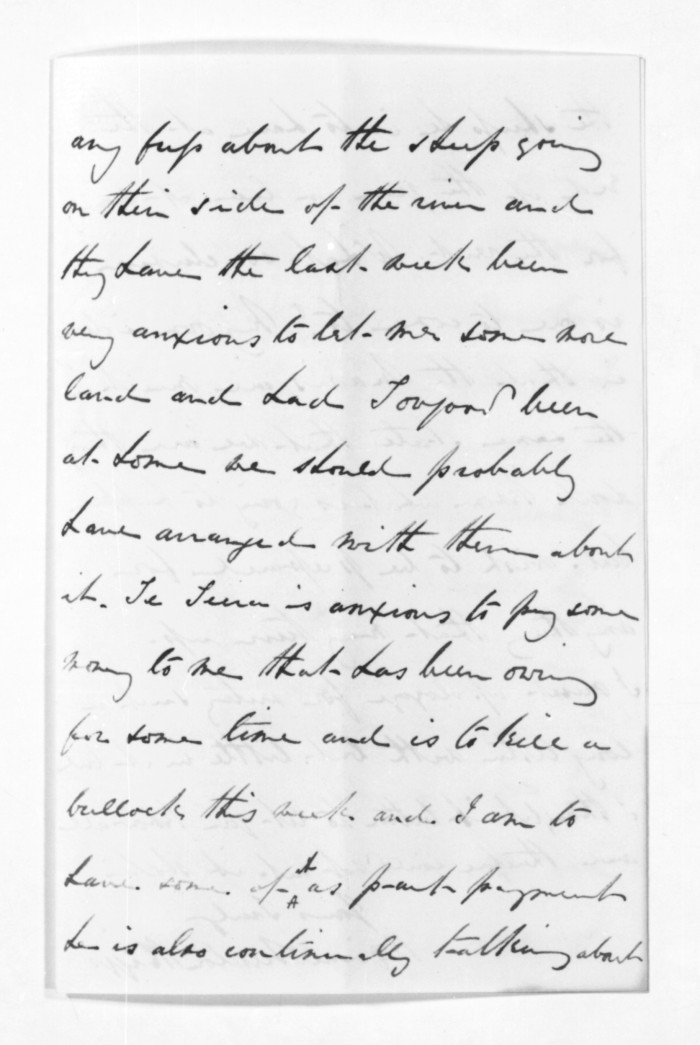 any fuss about the sheep going
on their side of the river and
they have the last week been
very anxious to let me some more
land and had Toogood been
at home we should probably
have arranged with them about
it. Te Teira is anxious to pay some
money to me that has been owing
for some time and is to kill a
bullock this week and I am to
have some of it as part payment
he is also continually talking about